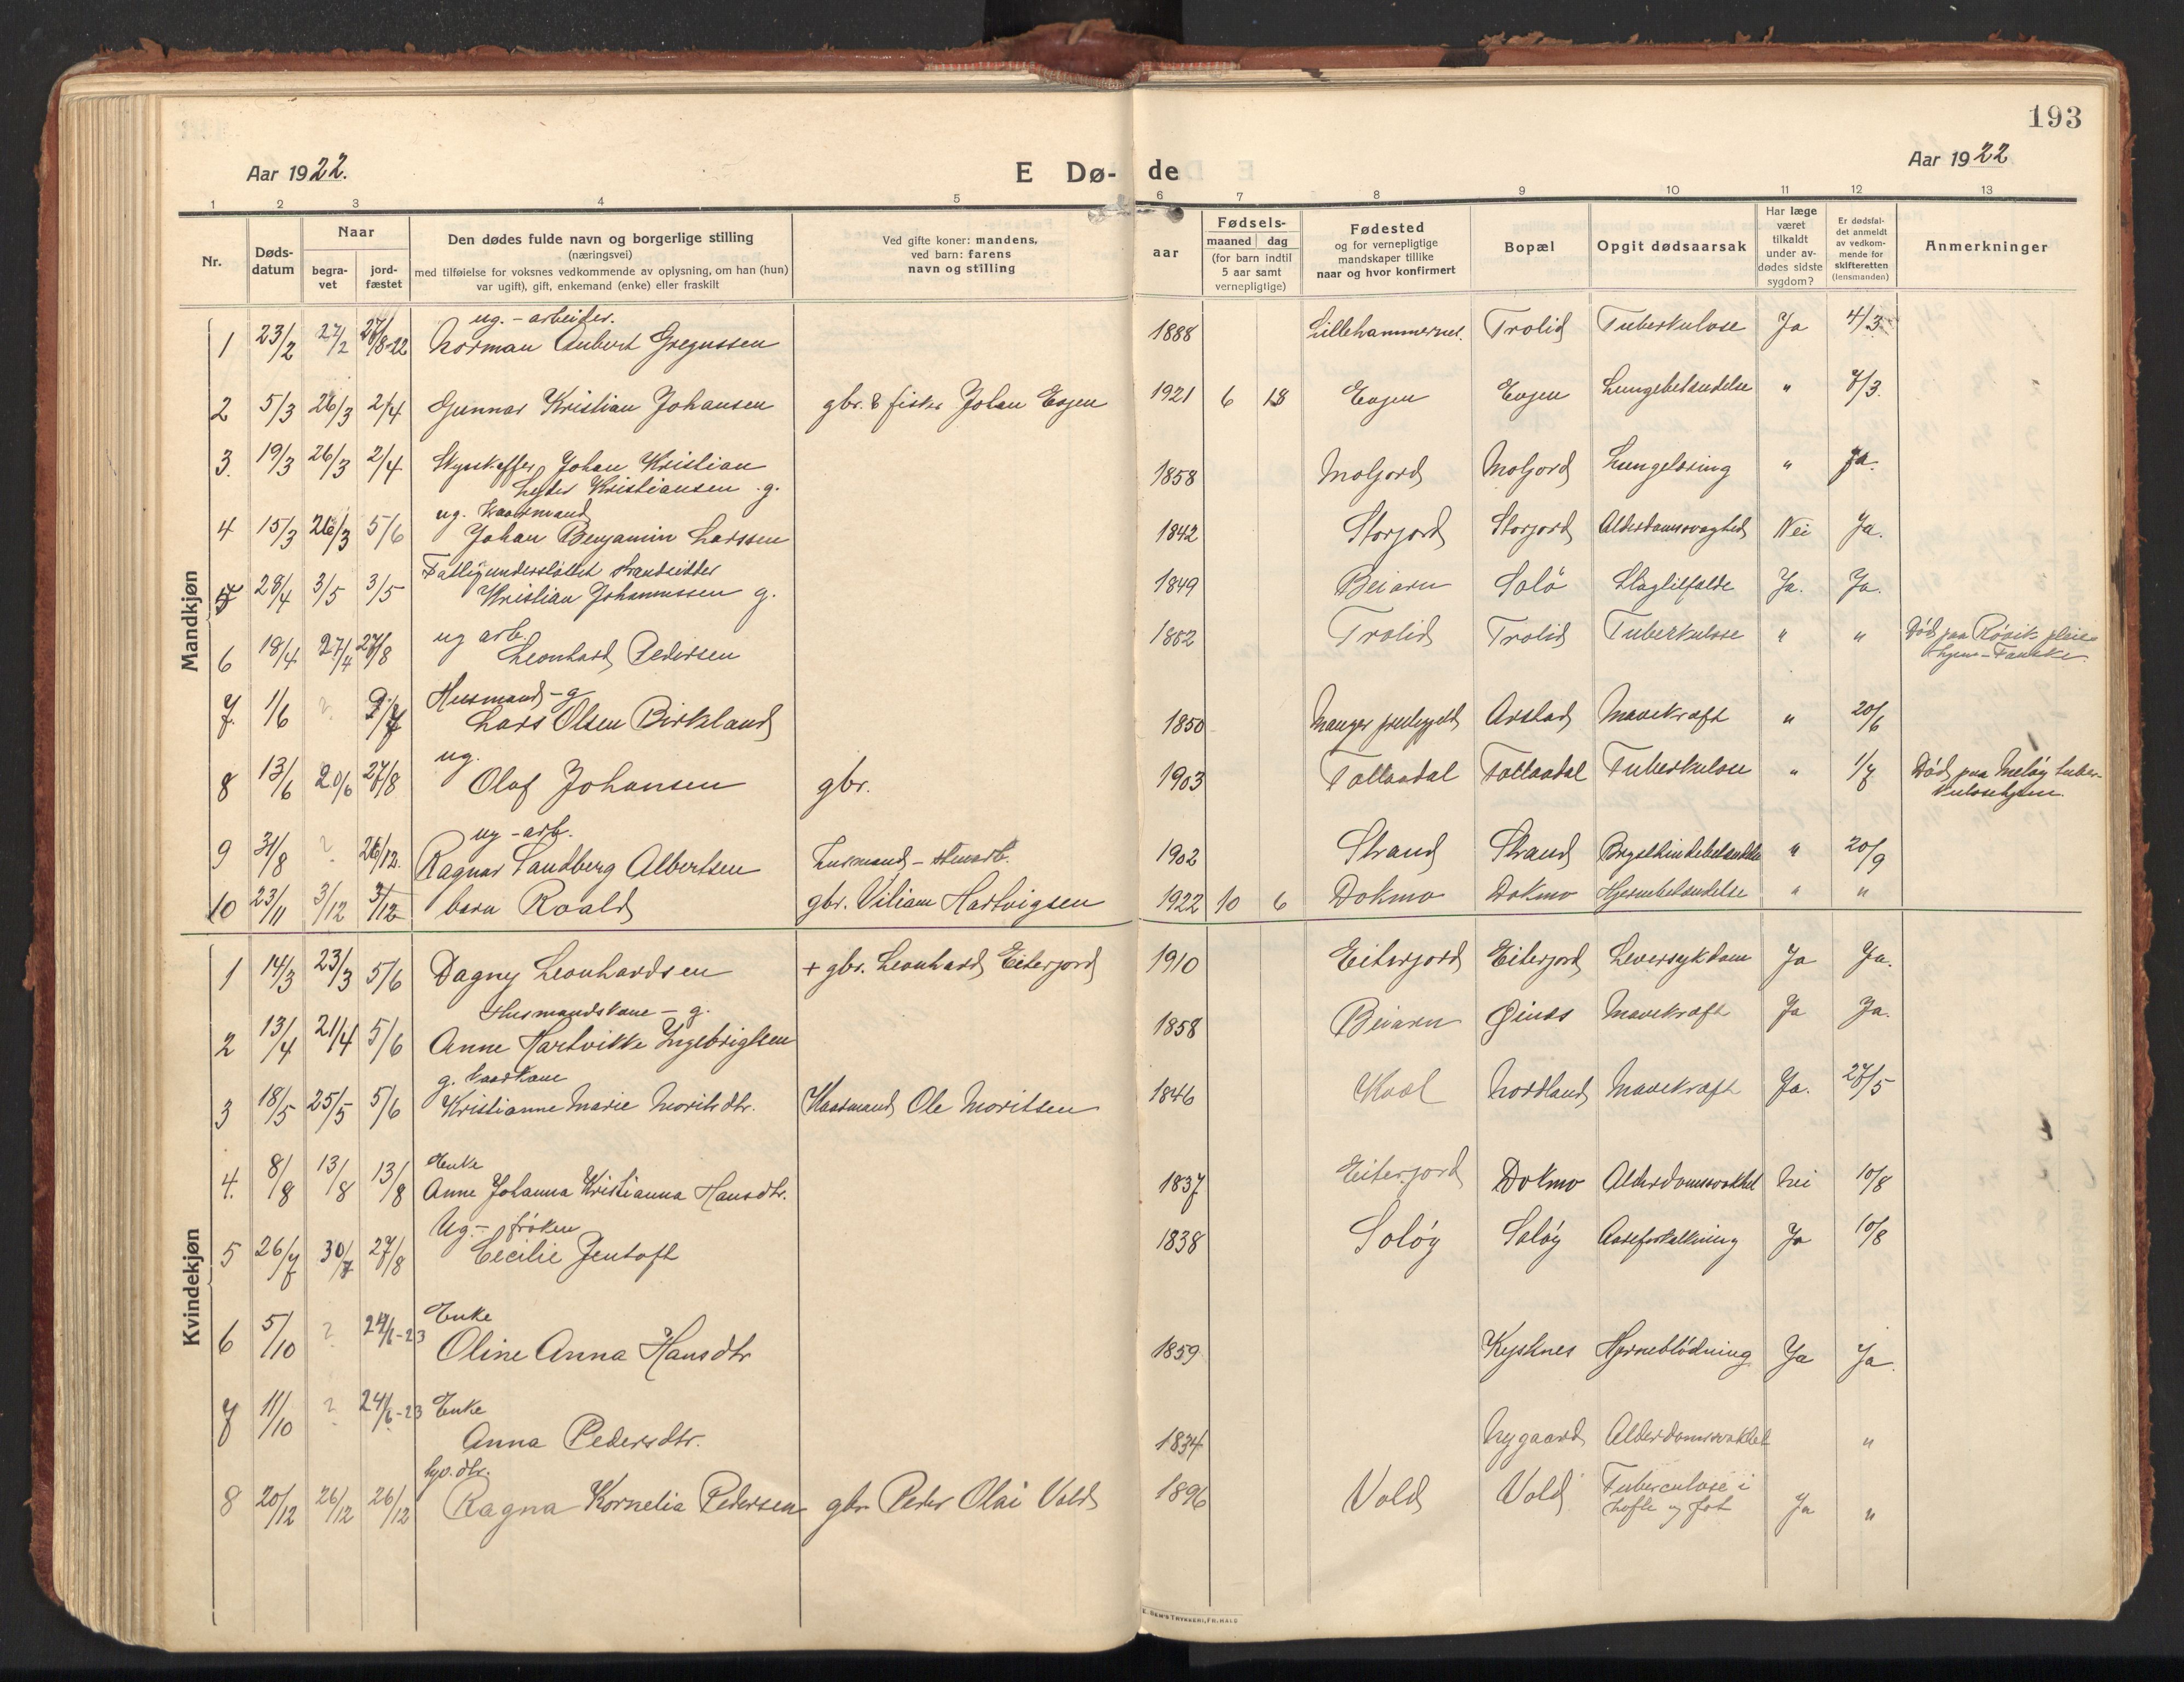 193
Aar 1922.
E Dø-
de
Aar 1922
1 2 3 4 5 6 7 8 9 10 11 12 13
Nr.
Døds-
datum
Naar
begra-
vet
jord-
fæstet
Den dødes fulde navn og borgerlige stilling
(næringsvei)
med tilføielse for voksnes vedkommende av oplysning, om han (hun)
var ugift, gift, enkemand (enke) eller fraskilt
Ved gifte koner: mandens,
ved barn: farens
navn og stilling
aar
Fødsels-
maaned dag
(for barn indtil
5 aar samt
vernepligtige)
Fødested
og for vernepligtige
mandskaper tillike
naar og hvor konfirmert
Bopæl
Opgit dødsaarsak
Har læge
været
tilkaldt
under av-
dødes sidste
sygdom?
Er dødsfal-
det anmeldt
av vedkom-
mende for
skifteretten
(lensmanden)
Anmerkninger
Mandkjøn
ug. - arbeider.
1 23/2 27/2 27/8-22 Norman Anbert Gregussen 1888 Lillehammernes. Trolid Tuberkulose Ja 4/3
2 5/3 26/3 2/4 Gunnar Kristian Johansen gbr. & fisker Johan Evjen 1921 6 18 Evjen Evjen Lungebetændelse " 7/3.
3. 19/3 26/3 2/4 Skyskaffer Johan Kristian
Lyder Kristiansen g. 1858 Moljord Moljord " Ja.
ug. Kaarmand
4 15/3 26/3 5/6 Johan Benjamin Larssen 1842 Storjord Storjord Alderdomssvaghed Nei Ja.
Fattigunderstøttet strandsidder
5 28/4 3/5 3/5 Kristian Johannessen g. 1849 Beiarn Solö Slagtilfælde Ja. Ja.
ug arb.
6 18/4 27/4 27/8 Leonhard Pedersen 1852 Trolid Trolid Tuberkulose " " Död paa Røvik pleie
hjem - Fauske.
Husmand - g
7. 1/6 ? 9/7 Lars Olsen Birkland 1850 Manger prestegjeld Arstad Mavekræft " 20/6
ug.
8 13/6 20/6 27/8 Olaf Johansen gbr. 1903 Tollaadal Tollaadal Tuberkulose " 1/7 Död paa Meløy tuber-
kulosehjem.
ug - arb.
9 31/8 ? 26/12. Ragnar Sandberg Albertsen husmand - 1902 Strand Strand Brysthindebetændelse " 20/9
10 23/11 3/12 3/12 barn Roald gbr. Viliam Hartvigsen 1922 10 6 Dokmo Dokmo Hjernebetændelse " "
Kvindekjøn
1 14/3 23/3 5/6 Dagny Leonhardsen + gbr. Leonhard Eiterjord 1910 Eiterjord Eiterjord Leversykdom Ja Ja.
Husmandskone - g.
2 13/4 21/4 5/6 Anne Hartvikke Ingebrigtsen 1858 Beiarn Øines Mavekræft Ja Ja.
g. kaarkone
3 18/5 25/5 5/6 Kristianne Marie Moritsdtr. Kaarmand Ole Moritsen 1846 Kvæl Nordland Mavekræft Ja. 27/5
Enke
4. 8/8 13/8 13/8 Anne Johanna Kristianna Hansdtr. 1837 Eiterjord Dokmo Alderdomssvakhet Nei 10/8
Ug. - frøken
5 26/7 30/7 27/8 Cecilie Jentoft 1838 Soløy Soløy Aareforkalkning Ja 10/8
Enke
6 5/10 ? 24/6-23 Oline Anna Hansdtr 1859 Kysknes Hjerneblödning Ja Ja.
Enke
7 11/10 ? 24/6-23 Anna Pedersdtr. 1834 Nygaard Alderdomssvakhet "
gbr.dtr.
8 20/12 26/12 26/12 Ragna Kornelia Pedersen gbr Peder Olai Vold 1896 Vold Vold Tuberculose i
hofte og fot Ja "
E. SEM'S TRYKKERI, FR.HALD